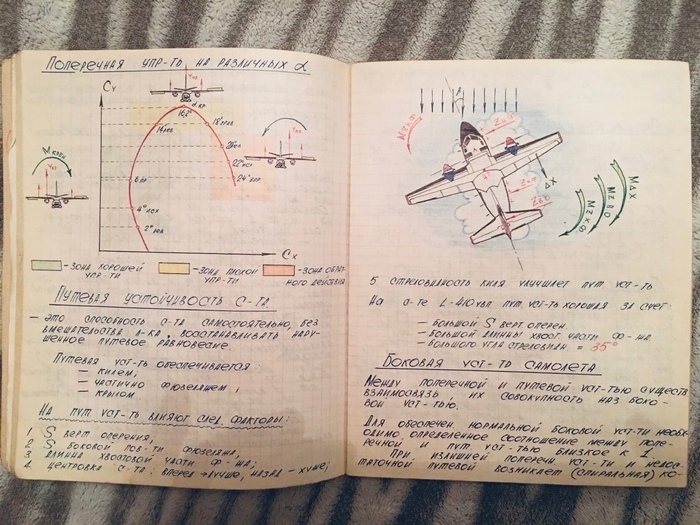 Поперечная упр-ть на различных α
Cy
α кр
16,2°
14 лев
18° прав
22° исх
24°
Mкрен
6
4° исх
2°
Cx
- зона хорошей упр-ти
- зона плохой упр-ти
- зона обратного действия
Путевая устойчивость с-та
- это способность с-та самостоятельно, без
вмешательства л-ка, восстанавливать нару-
шенное путевое равновесие.
Путевая уст-ть обеспечивается:
- килем,
- частично фюзеляжем,
- крылом.
На пут уст-ть влияют след. факторы:
1 S верт оперения,
2 S боковой пов-ти фюзеляжа,
3 длинна хвостовой части ф-жа;
4. центровка с-та: вперед → лучше, назад - хуже;
ΔX
MΔX
5 стреловидность киля улучшает пут уст-ть
На с-те L-410 увп пут. уст-ть хорошая за счет:
- большой S верт оперен.
- большой длинны хвост части ф-жа
- большого угла стреловидн. = 35°
Боковая уст-ть самолета
Между поперечной и путевой уст-тью существ
взаимосвязь, их совокупность наз боко-
вой уст-тью.
Для обеспечен нормальной боковой уст-ти необхо-
димо определенное соотношение между попе-
речной и пут уст-тью близкое к 1.
При излишней поперечн уст-ти и недос-
таточной путевой возникает (спиральная) ко-